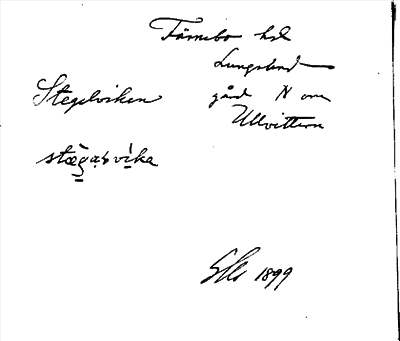 Färnebo hd
Lungsund
Stegelviken gård N om
Ullvittern
stægəlvika
1899